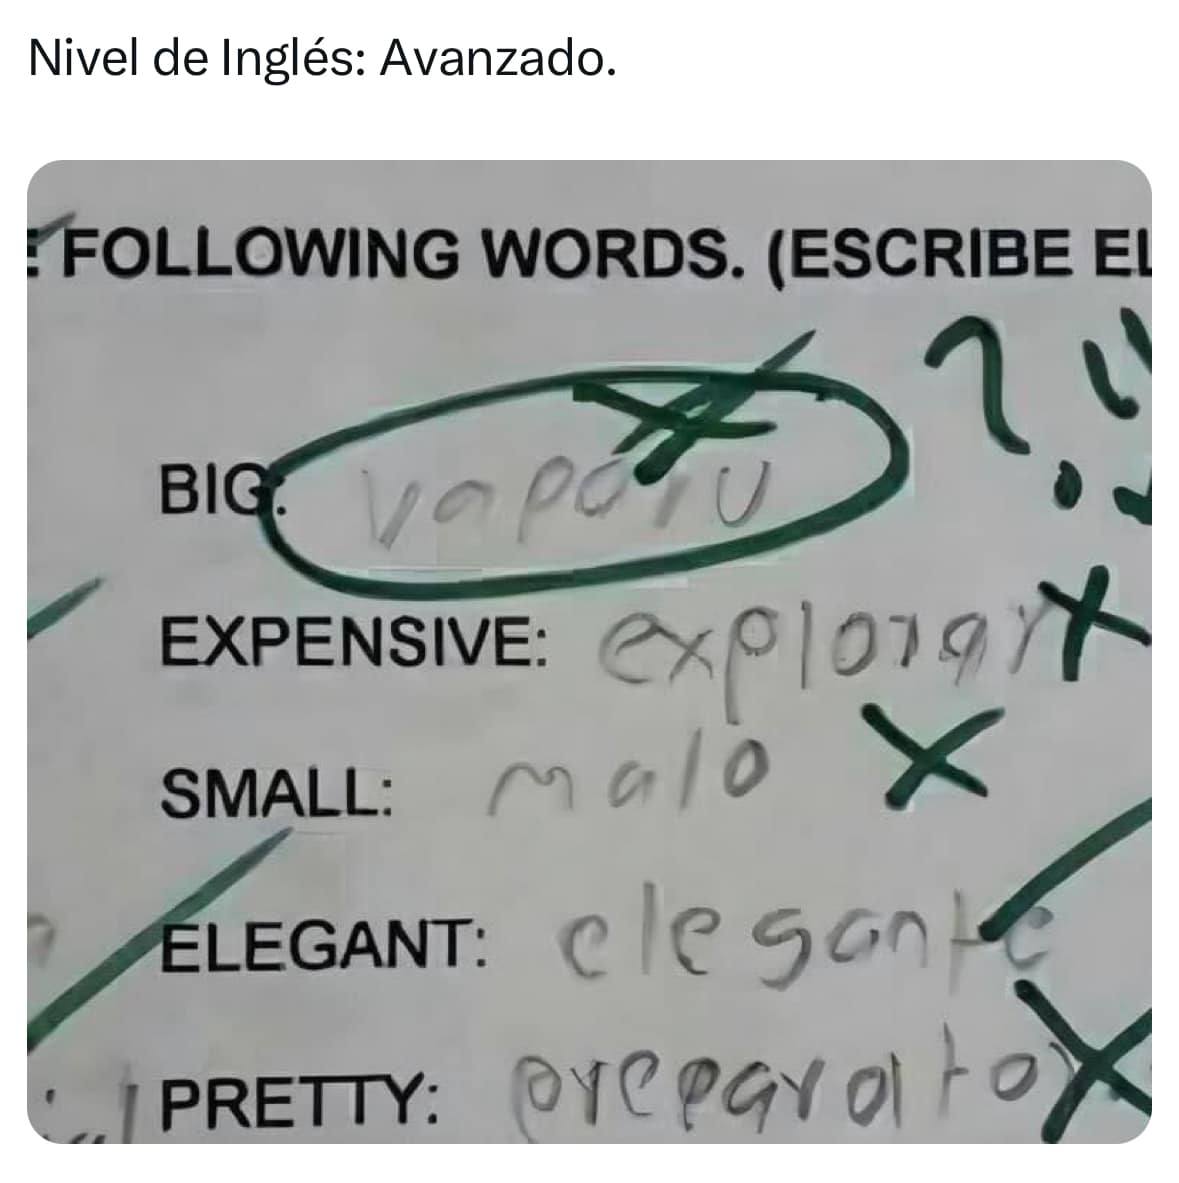 Nivel de Inglés: Avanzado.
FOLLOWING WORDS. (ESCRIBE EL
BIG: vaporu
EXPENSIVE: explorar
SMALL: malo
ELEGANT: elegante
PRETTY: